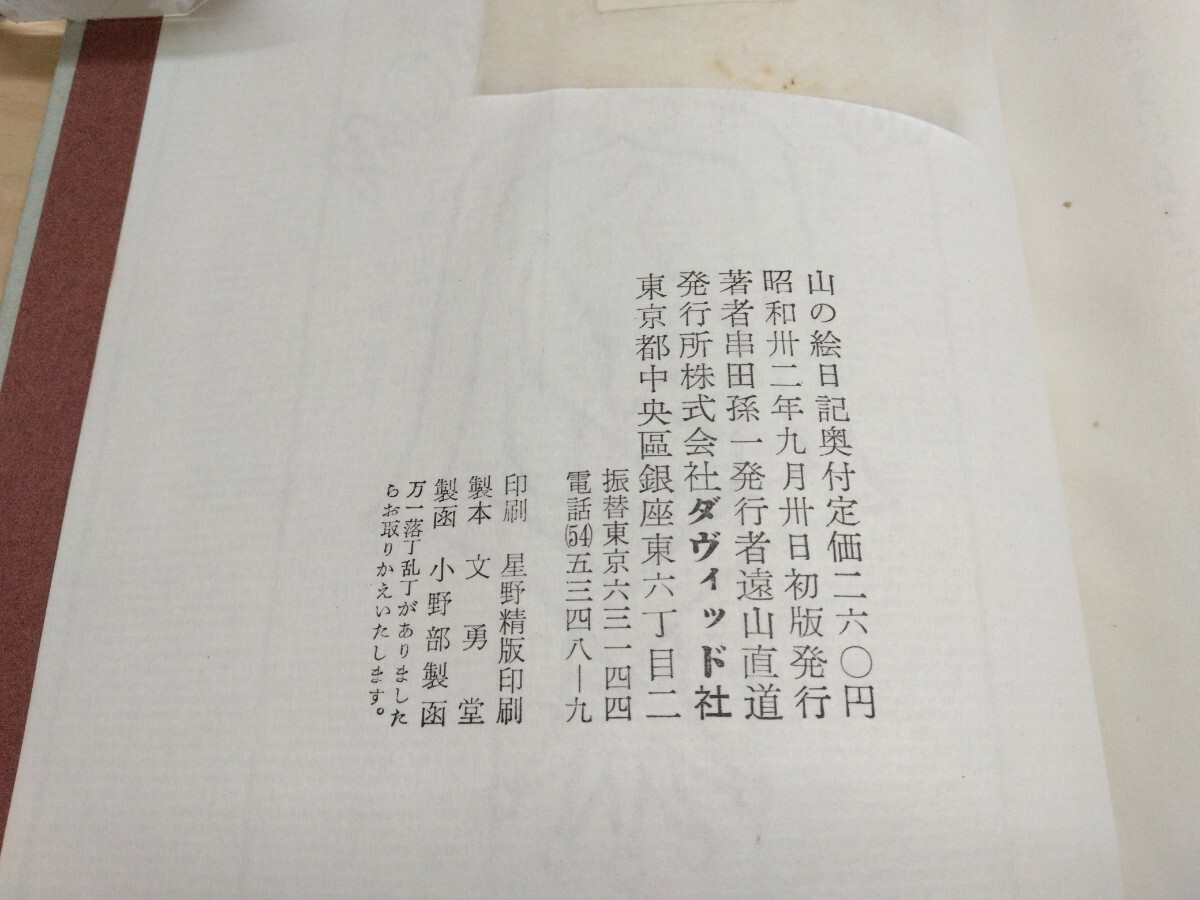 山の絵日記奥付定価二六〇円
昭和卅二年九月卅日初版発行
著者串田孫一発行者遠山直道
発行所株式会社ダヴィッド社
東京都中央區銀座東六丁目二
振替東京六三一四四
電話(54)五三四八―九
印刷 星野精版印刷
製本 文勇堂
製函 小野部製函
万一落丁乱丁がありました
らお取りかえいたします。